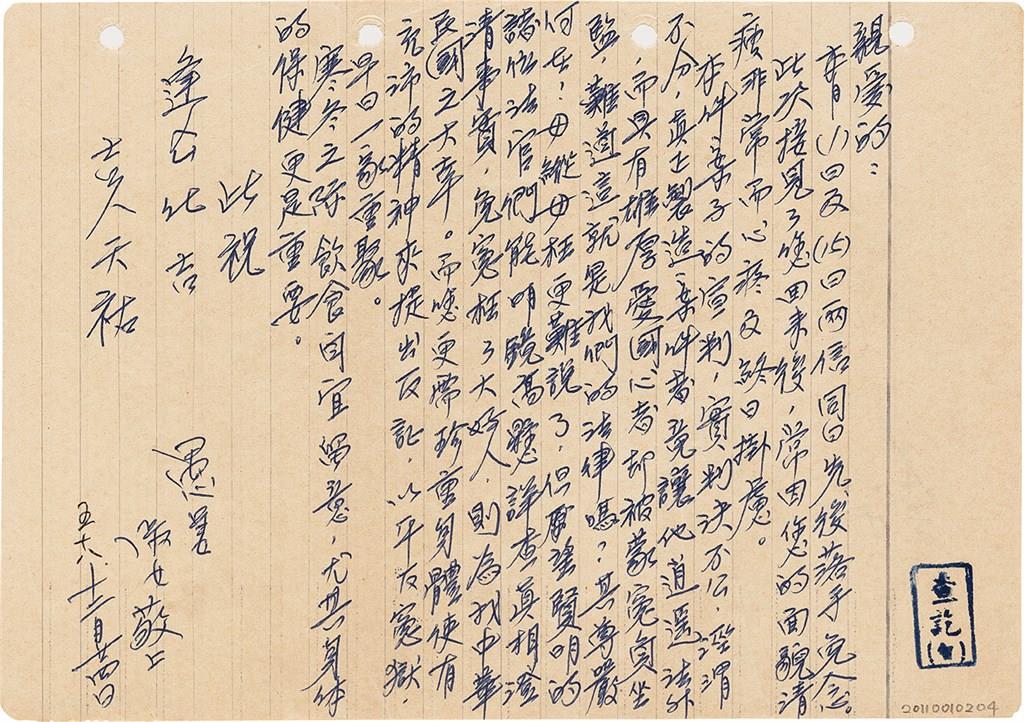 親愛的：
本月(1)日及(15)日兩信同日先後落手免念。
此次接見了您回來後，常因您的面貌清
瘦非常而心疼又終日掛慮。
本件案子的宣判，實判決不公，涇渭
不分，真正製造案件者竟讓他逍遥法外
，而具有堆厚愛國心者却被蒙寃負坐
監，難道這就是我們的法律嗎？其尊嚴
何在！毋縱毋枉更難說了，但願望賢明的
諸位法官們能明鏡高懸詳查真相澄
清事實，免寃枉了大好人，則為我中華
民國之大幸。而您更需珍重身體使有
充沛的精神來提出反訴，以平反寃獄，
早日一家重聚。
寒冬之際飲食自宜留意，尤其身体
的保健更是重要。
此祝
逢凶化吉
吉人天祐
愚妻
淑女敬上
五六、十二月廿四日
查訖
20110010204